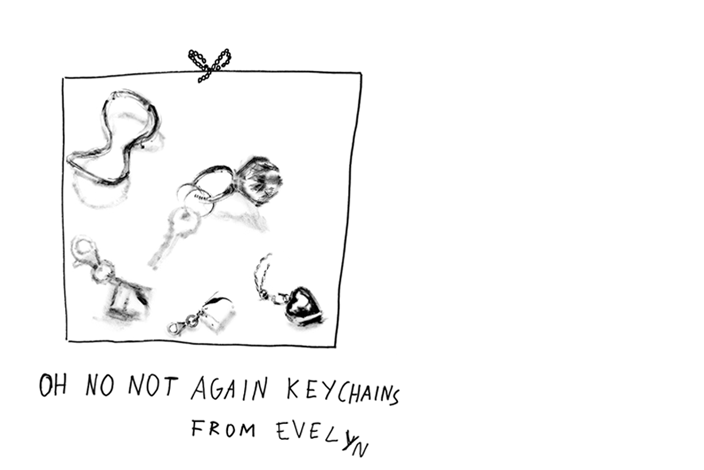 OH NO NOT AGAIN KEYCHAINS
FROM EVELYN